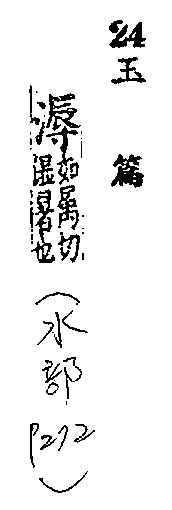 24
玉篇
溽如属切
湿暑也
(水部
P272)